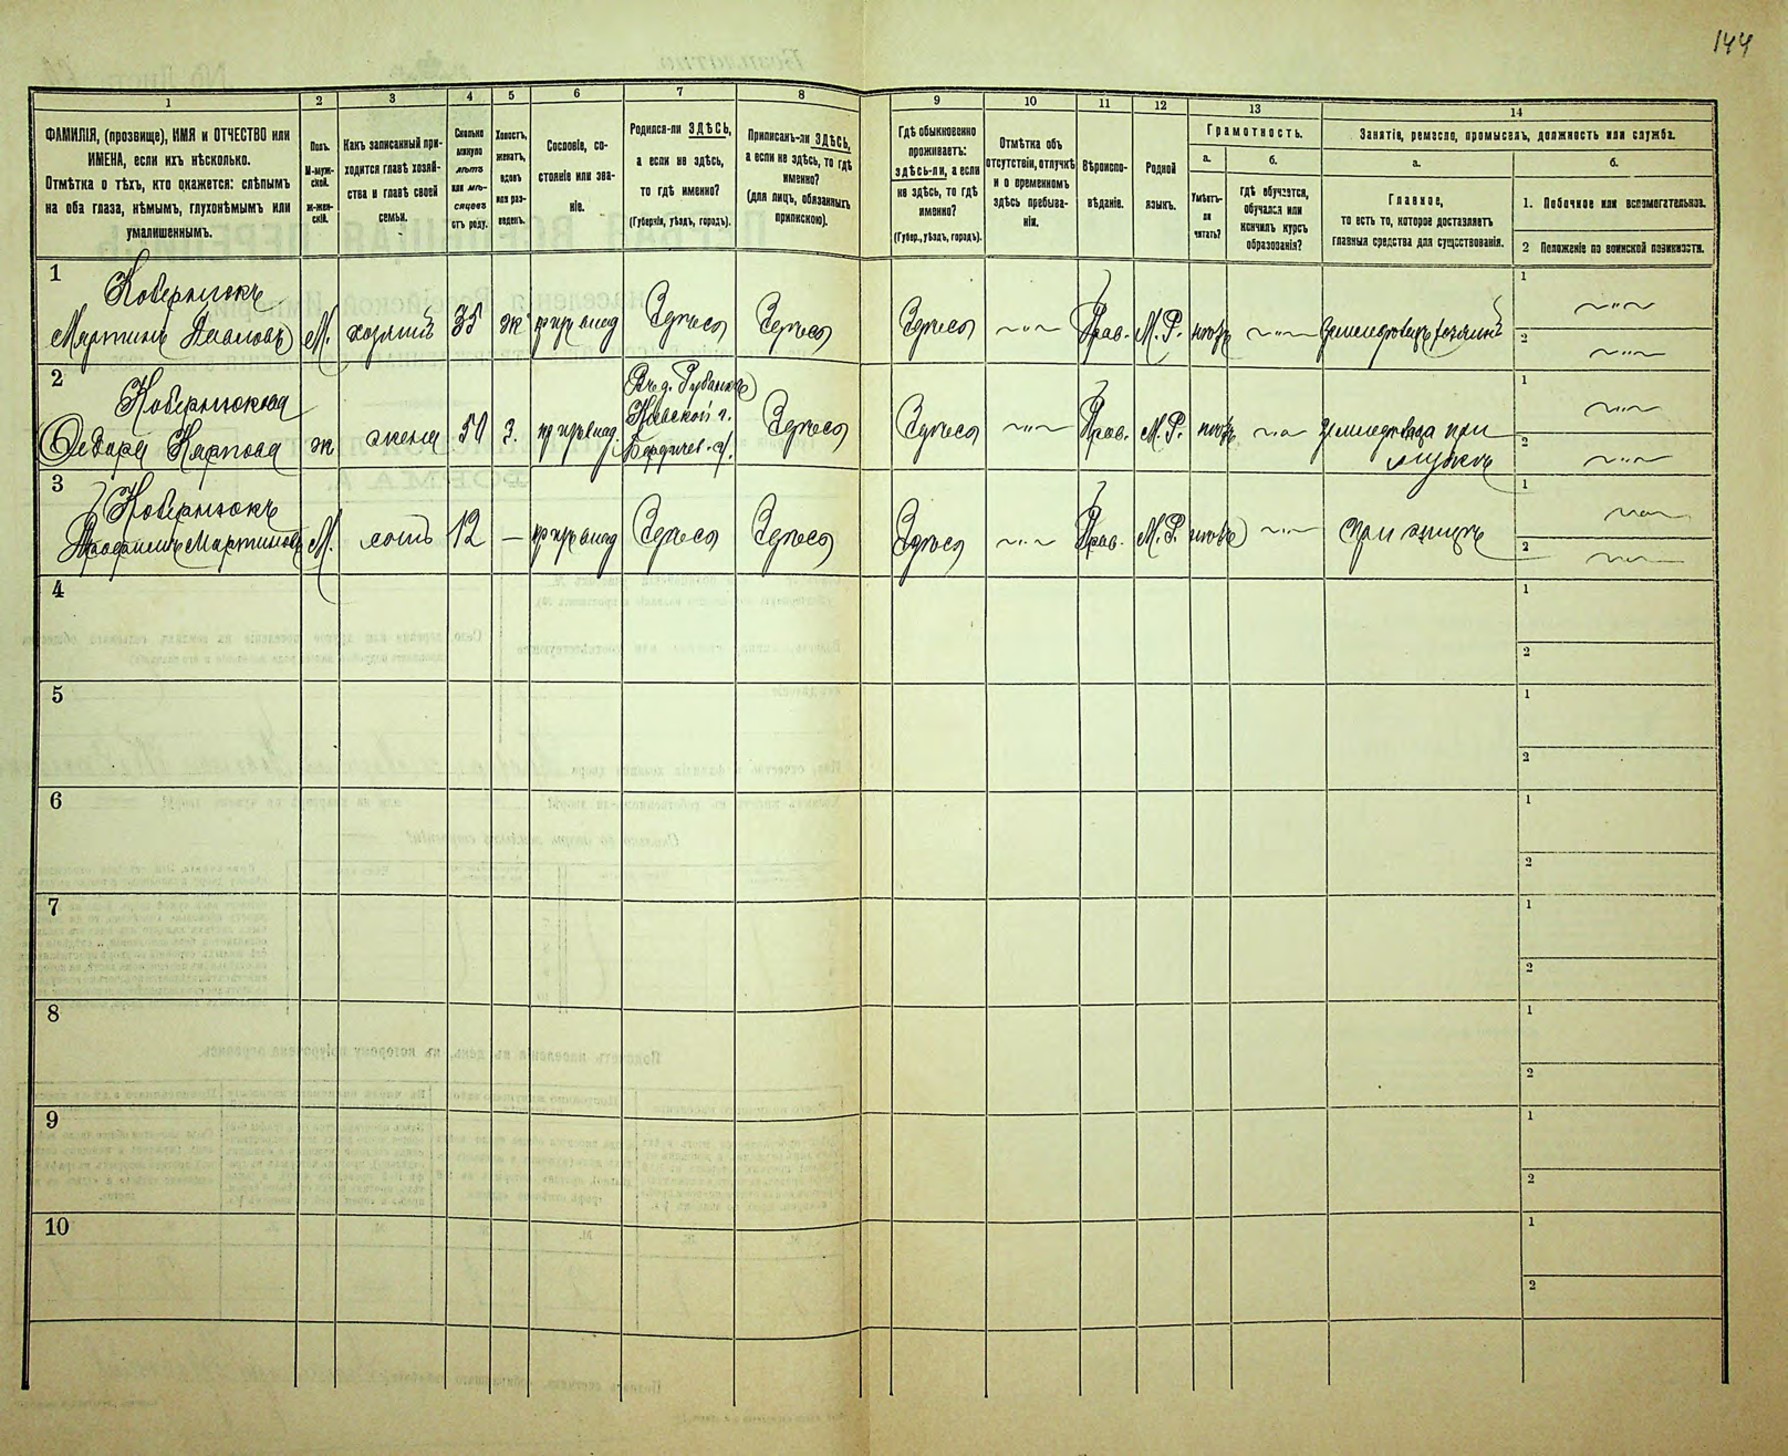 144
1
2
3
4
5
6
7
8
9
10
11
12
13
14
ФАМИЛІЯ, (прозвище), ИМЯ и ОТЧЕСТВО или
ИМЕНА, если ихъ нѣсколько.
Отмѣтка о тѣхъ, кто окажется: слѣпымъ
на оба глаза, нѣмымъ, глухонѣмымъ или
умалишеннымъ.
Полъ.
М-муж-
ской.
ж-жен-
скій.
Какъ записанный при-
ходится главѣ хозяй-
ства и главѣ своей
семьи.
Сколько
минуло
лѣтъ
или мѣ-
сяцевъ
отъ роду.
Холостъ,
женатъ,
вдовъ
или раз-
веденъ.
Сословіе, со-
стояніе или зва-
ніе.
Родился-ли ЗДѢСЬ,
а если не здѣсь,
то гдѣ именно?
(Губернія, уѣздъ, городъ).
Приписанъ-ли ЗДѢСЬ,
а если не здѣсь, то гдѣ
именно?
(для лицъ, обязанныхъ
припискою).
Гдѣ обыкновенно
проживаетъ:
здѣсь-ли, а если
не здѣсь, то гдѣ
именно?
(Губер., уѣздъ, городъ).
Отмѣтка объ
отсутствіи, отлучкѣ
и о временномъ
здѣсь пребыва-
ніи.
Вѣроиспо-
вѣданіе.
Родной
языкъ.
Грамотность.
а.
Умѣетъ-
ли
читать?
б.
гдѣ обучается,
обучался или
кончилъ курсъ
образованія?
Занятіе, ремесло, промыселъ, должность или служба.
а.
Главное,
то есть то, которое доставляетъ
главныя средства для существованія.
б.
1. Побочное или вспомогательное.
2 Положеніе по воинской повинности.
1
Коберникъ
Мартинъ Павловъ М. хозяинъ 35 ж Здѣся Здѣся Здѣся Прав. М. Р.
1
2
2
Федора Карпова ж жена 54 з. Здѣся Здѣся Прав. М. Р.
Кіевской г.
Бердичев. у.
при
мужѣ
1
2
3
Коберникъ
Мартиновъ М. сынъ 12 — Здѣся Здѣся Здѣся Прав. М. Р. при отцѣ
1
2
4
1
2
5
1
2
6
1
2
7
1
2
8
1
2
9
1
2
10
1
2